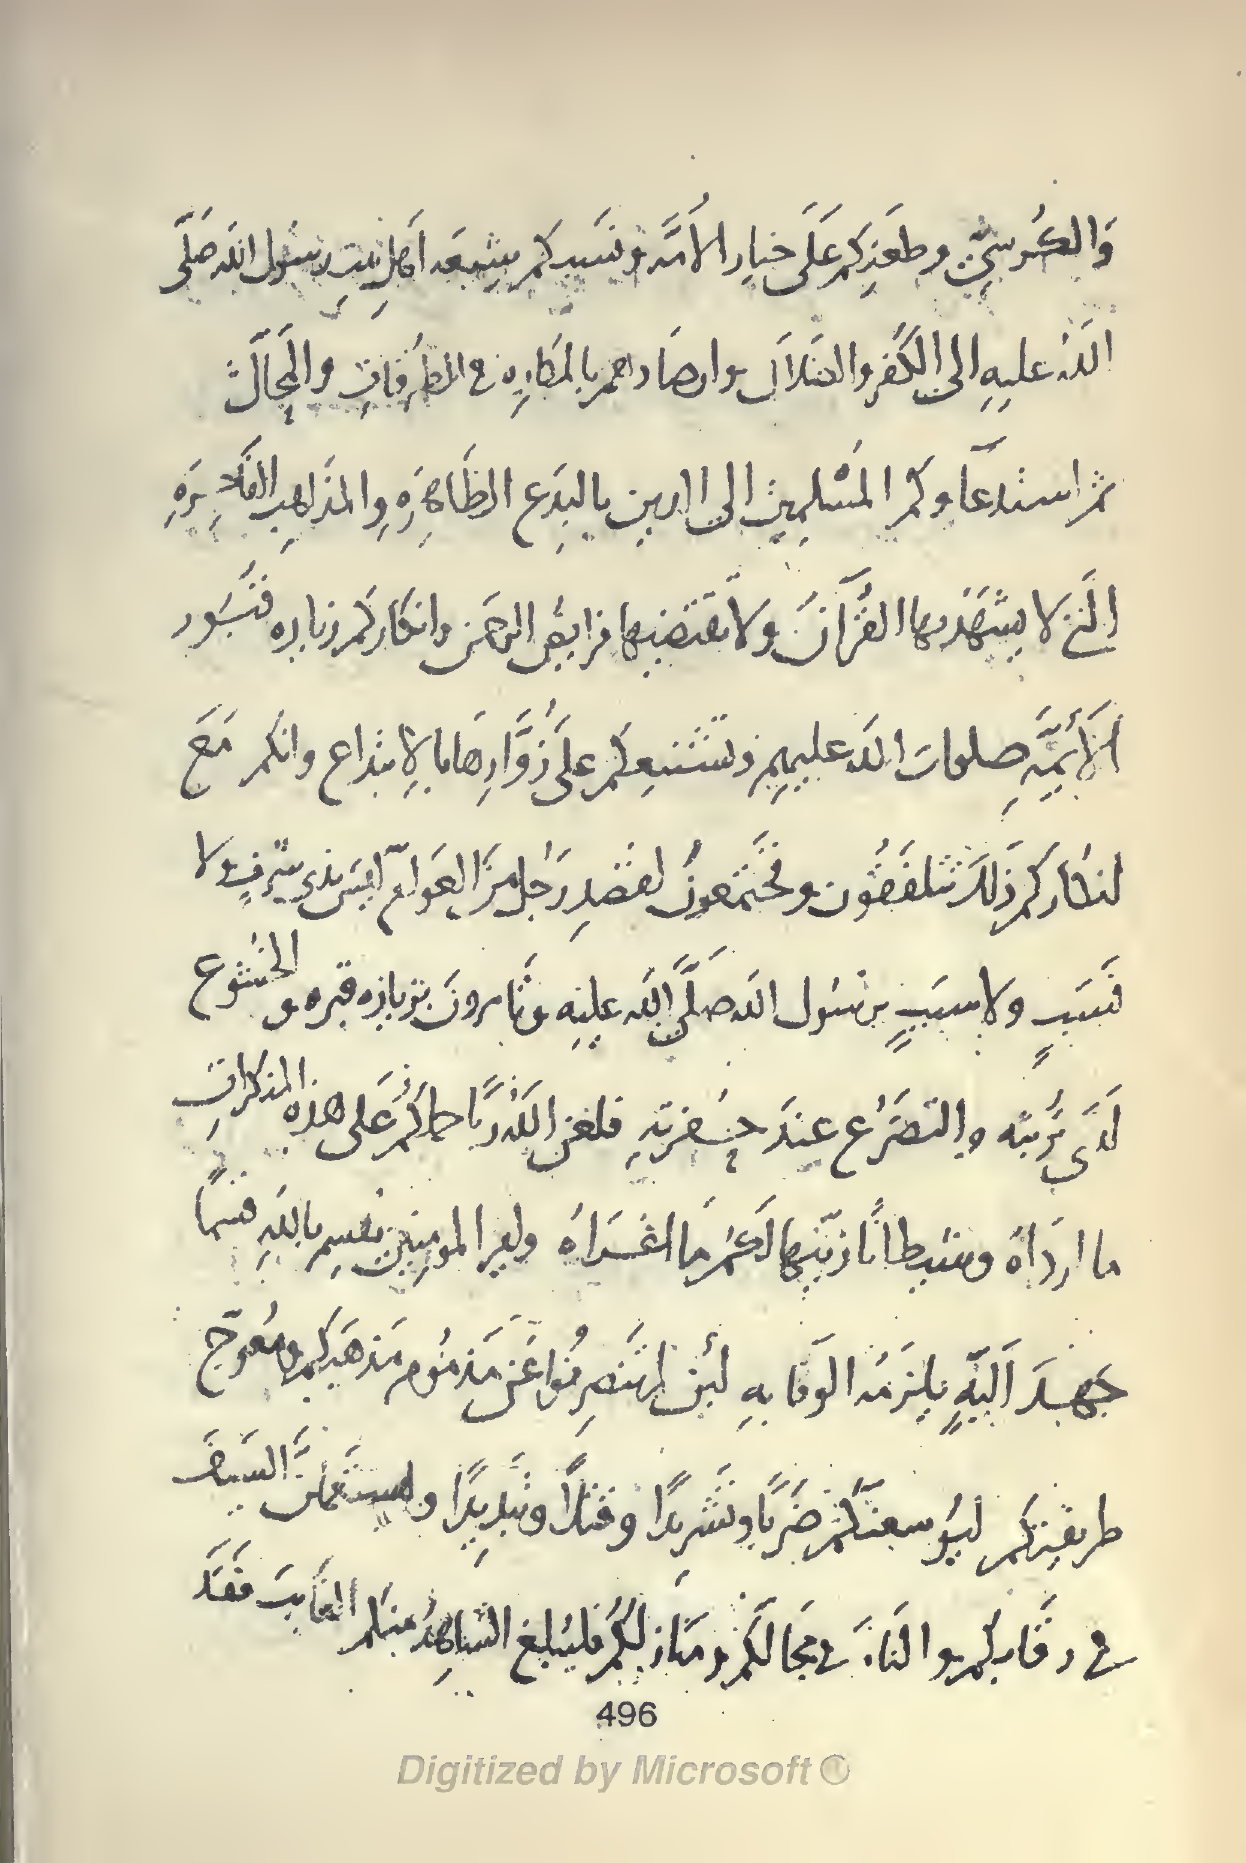 وَالكُرسِيّ وطعَنِكم عَلَى خيَارِ الأمَّة ونَسَبكم شِيعَة اَهلِ بَيتِ رسُول الله صَلَّى
اللهُ عليهِ الى الكُفرِ والضَلاَل وارصَادهم بالمَكارِهِ في الطرُقاتِ والمَحَالّ
ثمّ استدعَآوكم المُسْلِمِينَ الى الدينِ بالبِدَع الظَاهِرَهِ والمَذَاهِبِ الفَاجِرَهِ
الَّتي لا يشهَدُ بها القُرآنُ ولاَ تقتَضيها فرايضُ الرحمَن وانكاركم زيارة قُبُور
الاَئمَّهِ صلوات الله عليهم وتشنيعكم عَلَى زُوَّارِهَا بالإبتداع وانكم مَعَ
انكاركم ذَلكَ تتلفَقُون وتجَتَمعونَ لقَصْدِ رَجُلٍ مِنَ العَوامّ لَيسَ بذي شرَفٍ ولا
نَسَبٍ ولا سبَبٍ برسُول الله صَلَّى الله عليهِ وتَامرونَ بزيارةِ قبره والخُشُوع
لَدَى تُربته والتضَرُّع عِندَ حُفرَتِهِ فلعَن اللهُ رَبًّا حملكُم عَلى هذه المنكراتِ
ما اردَاهُ وشَيطاناً زيّنها لَكُم مَا اغوَاهُ وامير المومِنينَ يُقسِم باللهِ قسَمًا
جَهدَ اَليّهٍ يلزَمُه الوَفا بهِ لئِن لم تَنصَرِفُوا عَن مَذمُوم مَذهَبِكم ومُعوَجّ
طريقتِكم ليُوسعنّكم ضَربًا وتشَريدًا وقتلاً وتبديدًا وليستَعملنَّ السَيفَ
في رقَابكم والنَارَ في مَحَالّكم ومنازلكُم فليُبلغ الشاهِدُ منكم الغَايبَ فقَد
496
Digitized by Microsoft ®